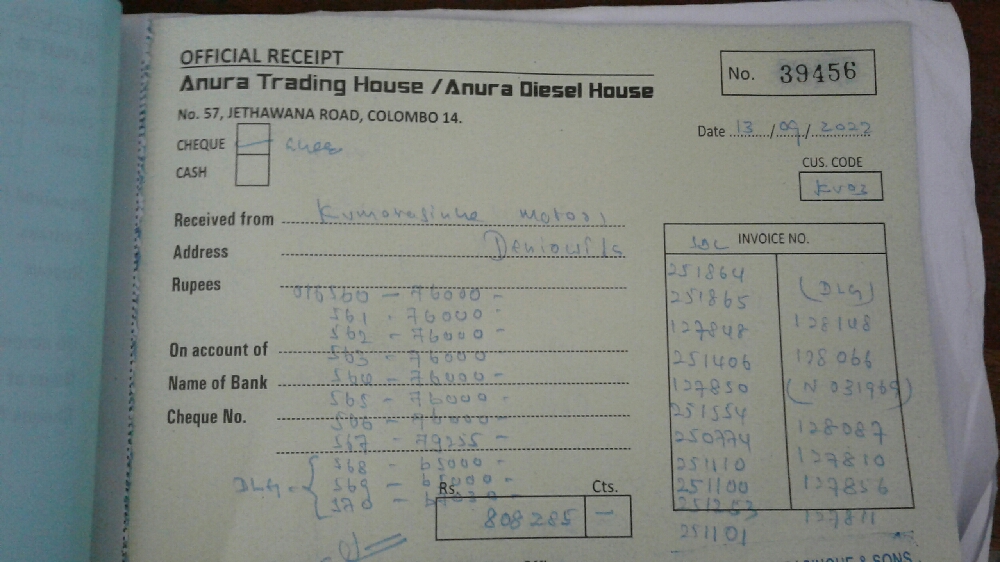 OFFICIAL RECEIPT
Anura Trading House / Anura Diesel House
No. 39456
No. 57, JETHAWANA ROAD, COLOMBO 14.
Date 13/09/2022
CHEQUE
CASH
CUS. CODE
Received from Kumarasinhe Motors
Address
Rupees
076560 - 76000 -
561 - 76000 -
562 - 76000 -
On account of 563 - 76000 -
Name of Bank 564 - 76000 -
565 - 76000 -
Cheque No. 566 - 76000 -
567 - 79255 -
568 - 65000 -
DLG - 569 - 65000 -
570 -
Rs. Cts.
808285 -
INVOICE NO.
251864
251865
127848
251406
127850
251554
250774
251110
251100
251253
251101
(DLG)
128148
128066
(N 031969)
128087
127810
127856
127811
& SONS